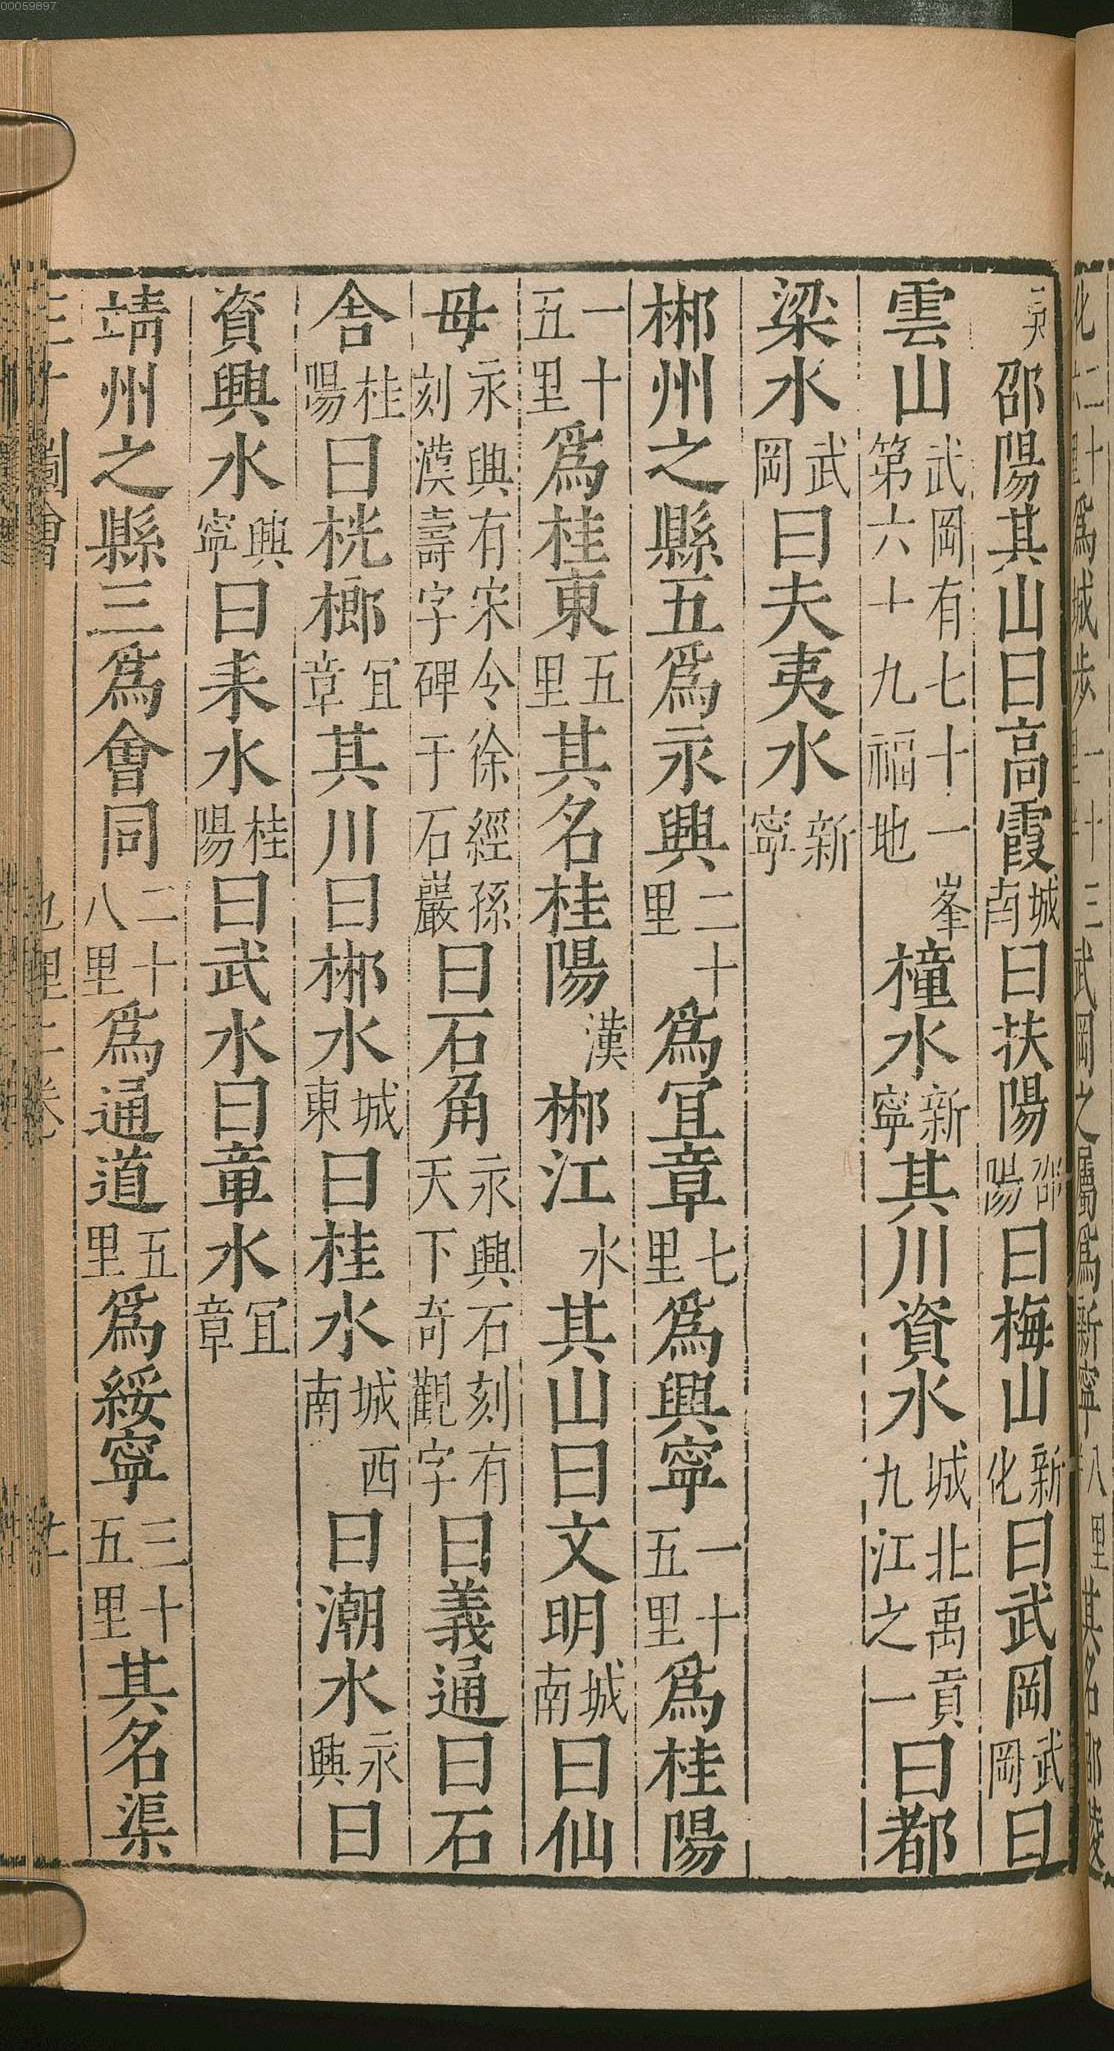 吳邵陽其山曰高霞城南曰扶陽邵陽曰梅山新化曰武岡武岡曰
雲山武岡有七十一峯第六十九福地橦水新寧其川資水城北禹貢九江之一曰都
梁水武岡曰夫夷水新寧
郴州之縣五爲永興二十里爲宜章七里爲興寧一十五里爲桂陽
一十五里爲桂東五里其名桂陽漢郴江水其山曰文明城南曰仙
母永興有宋令徐經孫刻漢壽字碑于石巖曰石角永興石刻有天下奇觀字曰義通曰石
舍桂陽曰桄榔宜章其川曰郴水城東曰桂水城西南曰潮水永興曰
資興水興寧曰耒水桂陽曰武水曰章水宜章
靖州之縣三爲會同二十八里爲通道五里爲綏寧三十五里其名渠
00059897